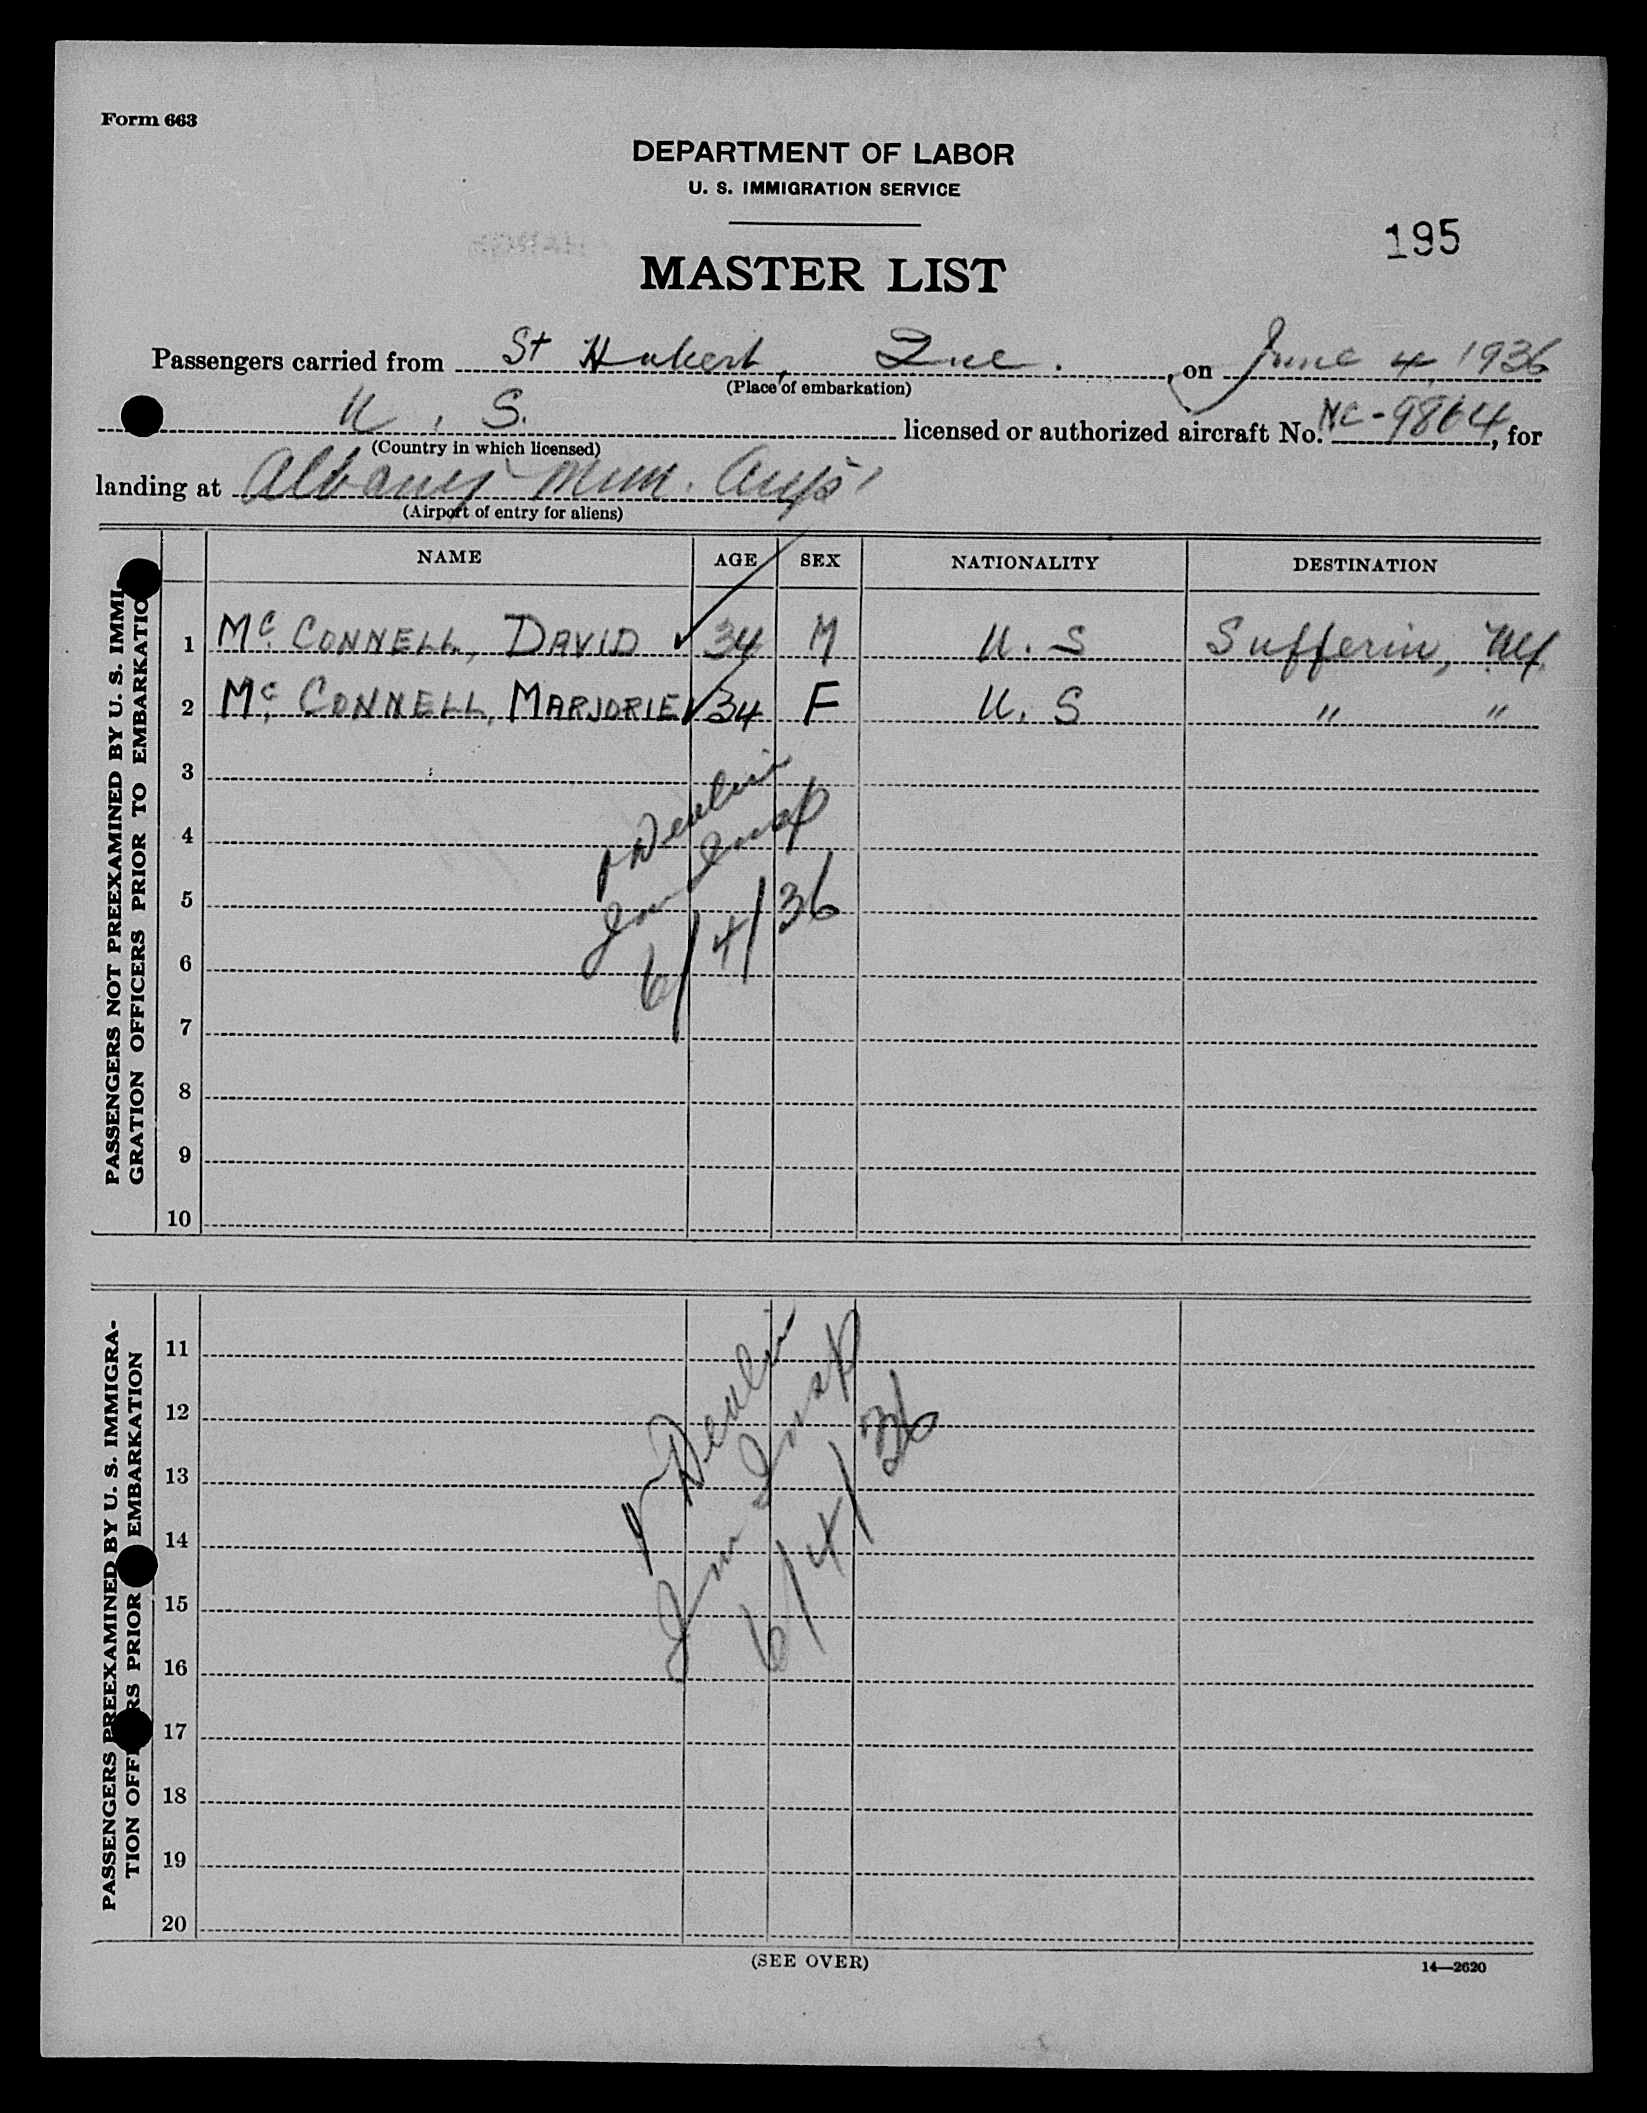 Form 663
DEPARTMENT OF LABOR
U. S. IMMIGRATION SERVICE
195
MASTER LIST
Passengers carried from St Hubert, Que. , on June 4, 1936
(Place of embarkation)
U. S. licensed or authorized aircraft No. NC-9864, for
(Country in which licensed)
landing at Albany Mun. Airp't
(Airport of entry for aliens)
NAME AGE SEX NATIONALITY DESTINATION
PASSENGERS NOT PREEXAMINED BY U. S. IMMI-
GRATION OFFICERS PRIOR TO EMBARKATION
1 McCONNELL, DAVID 34 M U. S Sufferin, NY.
2 McCONNELL, MARJORIE 34 F U. S " "
3
4
5
6
7
8
9
10
Devlin
Imm Insp
6/4/36
PASSENGERS PREEXAMINED BY U. S. IMMIGRA-
TION OFFICERS PRIOR EMBARKATION
11
12
13
14
15
16
17
18
19
20
Devlin
Imm Insp
6/4/36
(SEE OVER)
14—2620